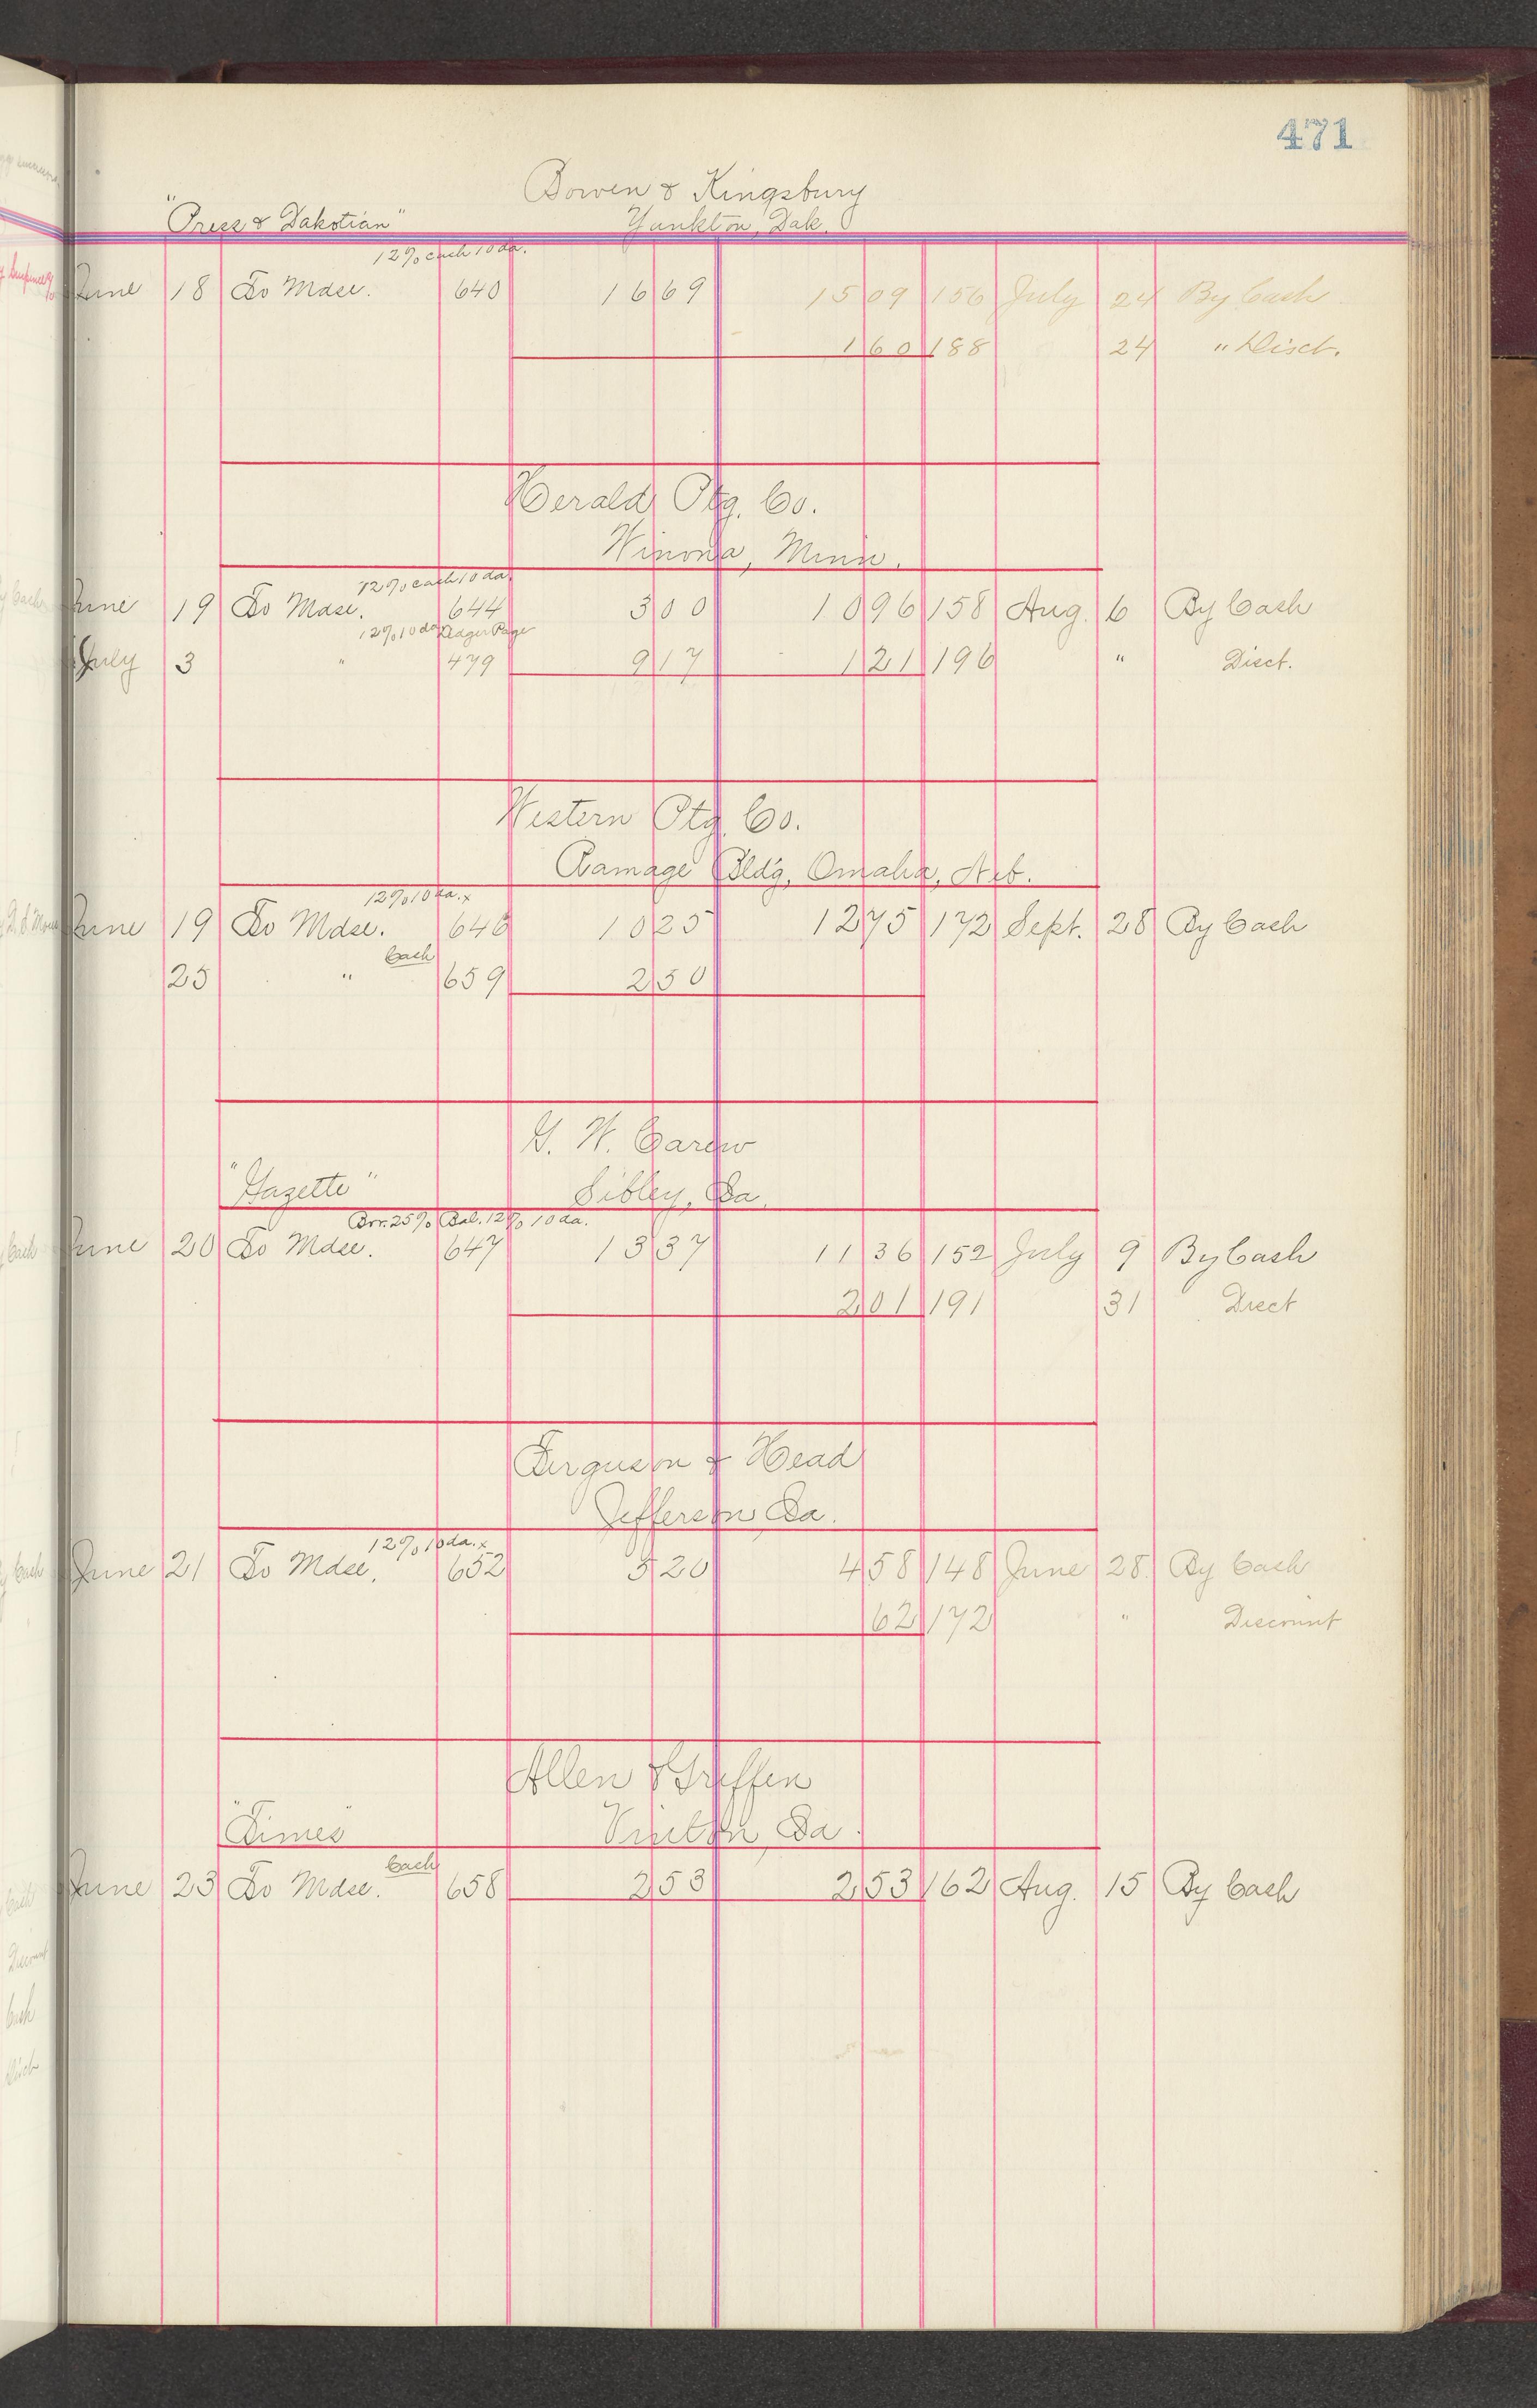 471
Bowen & Kingsbury
"Press & Dakotian" Yankton, Dak.
12% cash 10 da.
June 18 To Mdse. 640 16 69 15 09 156 July 24 By Cash
1 60 188 24 " Disct.
Herald Ptg. Co.
Winona, Minn.
12% cash 10 da.
June 19 To Mdse. 644 3 00 10 96 158 Aug. 6 By Cash
12% 10 da Ledger Page
July 3 " 479 9 17 1 21 196 " Disct.
Western Ptg. Co.
Ramage Bldg, Omaha, Neb.
12% 10 da. x
June 19 To Mdse. 646 10 25 12 75 172 Sept. 28 By Cash
Cash
25 " 659 2 50
G. W. Carew
"Gazette" Sibley, Ia.
25% Bal. 12% 10 da.
June 20 To Mdse. 647 13 37 11 36 152 July 9 By Cash
2 01 191 31 Disct
Ferguson & Head
Jefferson Ia.
12% 10 da. x
June 21 To Mdse. 652 5 20 4 58 148 June 28 By Cash
62 172 " Discount
Allen & Griffen
"Times" Vinton, Ia.
Cash
June 23 To Mdse. 658 2 53 2 53 162 Aug. 15 By Cash